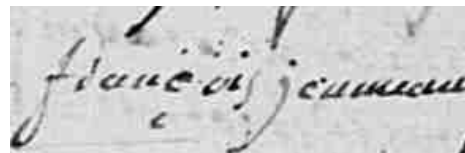 françois jeanneau